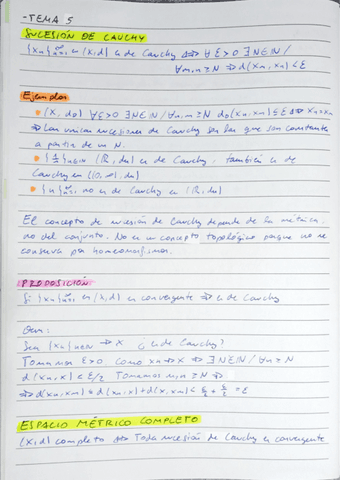 - TEMA 5
SUCESIÓN DE CAUCHY
{xn}∞n=1 en (X,d) es de Cauchy ⇔ ∀ε>0 ∃N∈ℕ /
∀n,m≥N ⇒ d(xn,xm)<ε
Ejemplos
• (X,dD) ∀ε>0 ∃N∈ℕ/∀n,m≥N dD(xn,xm)≤ε ⇔ xn=xm
⇒ Las únicas sucesiones de Cauchy son las que son constantes
a partir de un N.
• {1/n}n∈ℕ (ℝ,du) es de Cauchy, también es de
Cauchy en ((0,∞),du)
• {n}∞n=1 no es de Cauchy en (ℝ,du)
El concepto de sucesión de Cauchy depende de la métrica,
no del conjunto. No es un concepto topológico porque no se
conserva por homeomorfismos.
PROPOSICIÓN
Si {xn}∞n=1 en (X,d) es convergente ⇒ es de Cauchy
Dem:
Sea {xn}n∈ℕ → x ¿es de Cauchy?
Tomamos ε>0 como xn→x ⇒ ∃N∈ℕ/∀n≥N
d(xn,x)<ε/2 Tomamos m,n≥N ⇒
⇒ d(xn,xm)≤d(xn,x)+d(x,xm)<ε/2+ε/2=ε
ESPACIO MÉTRICO COMPLETO
(X,d) completo ⇔ Toda sucesión de Cauchy es convergente